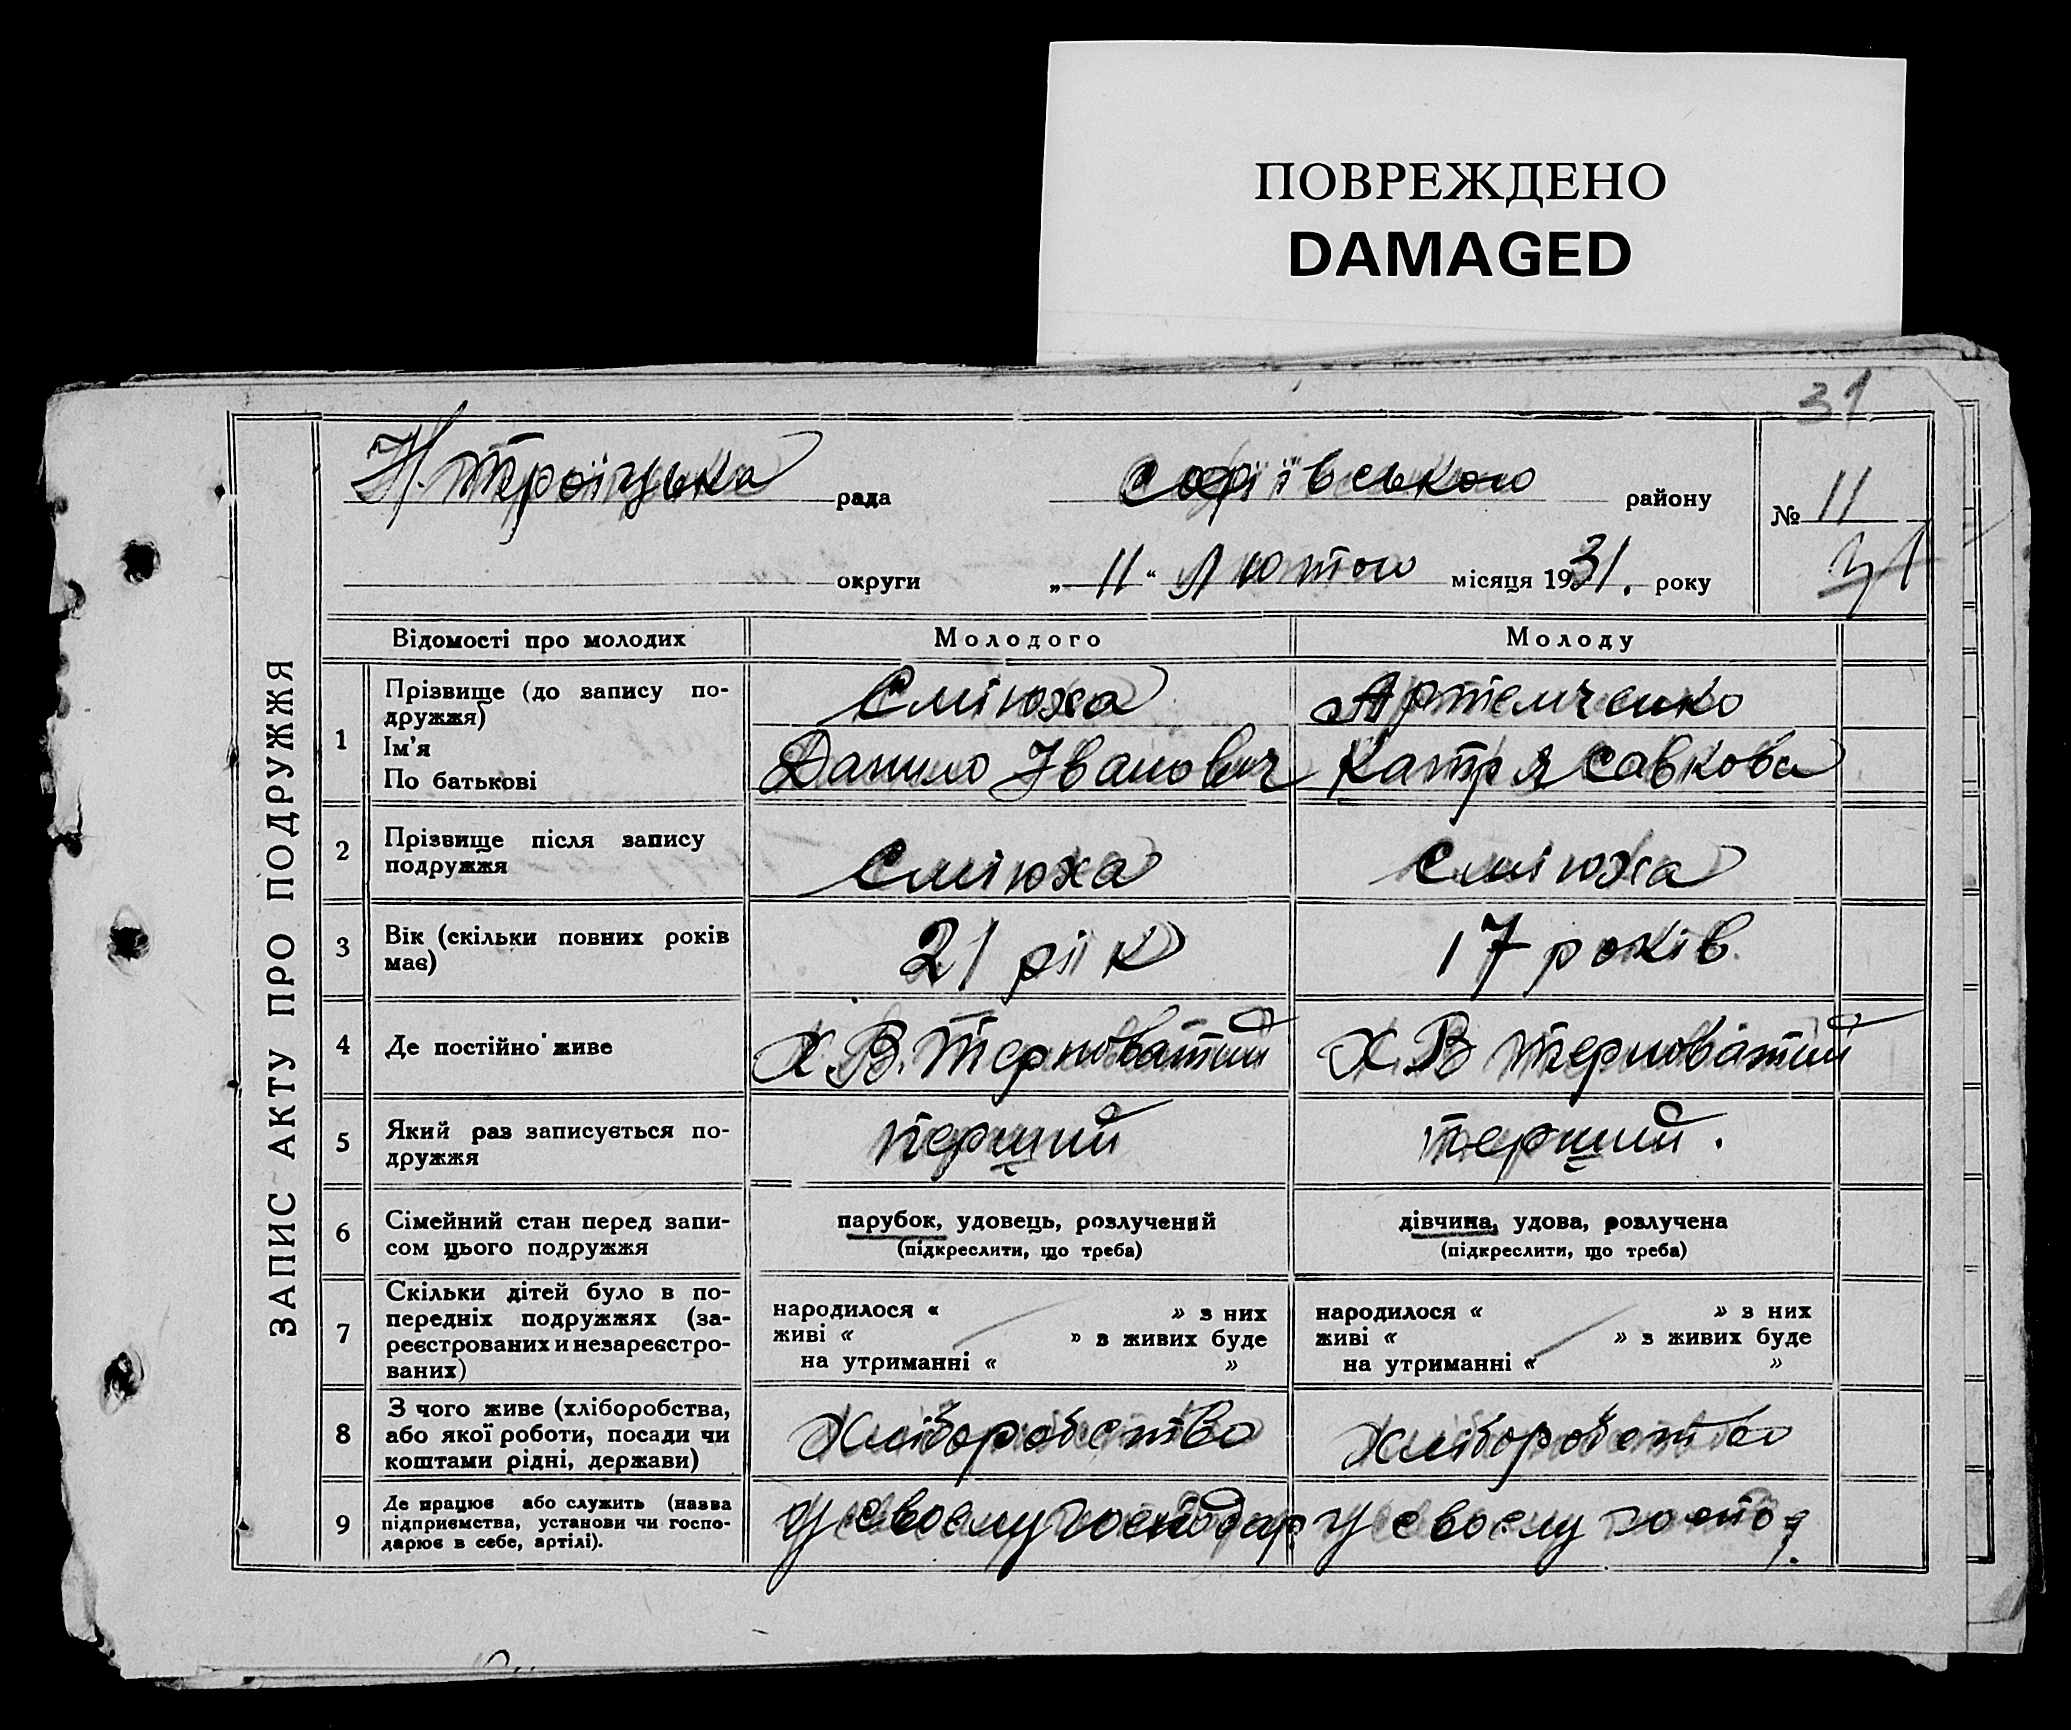 ПОВРЕЖДЕНО
DAMAGED
31
ЗАПИС АКТУ ПРО ПОДРУЖЖЯ
Н. Троїцька рада Софіївського району № 11
округи „ 11 “ Лютого місяця 1931. року
Відомості про молодих Молодого Молоду
1 Прізвище (до запису по-
дружжя) Сміюха Артемченко
Ім'я
По батькові Данило Іванович Катря Савкова
2 Прізвище після запису
подружжя Сміюха Сміюха
3 Вік (скільки повних років
має) 21 рік 17 років.
4 Де постійно живе Х. В. Терноватий Х. В Терноватий
5 Який раз записується по-
дружжя перший перший.
6 Сімейний стан перед запи-
сом цього подружжя
парубок, удовець, розлучений
(підкреслити, що треба)
дівчина, удова, розлучена
(підкреслити, що треба)
7 Скільки дітей було в по-
передніх подружжях (за-
реєстрованих и незареєстро-
ваних)
народилося « » з них
живі « » з живих буде
на утриманні « »
народилося « » з них
живі « » з живих буде
на утриманні « »
8 З чого живе (хліборобства,
або якої роботи, посади чи
коштами рідні, держави)
Хліборобство Хліборобство
9 Де працює або служить (назва
підприємства, установи чи госпо-
дарює в себе, артілі).
У своєму господар. У своєму господ.